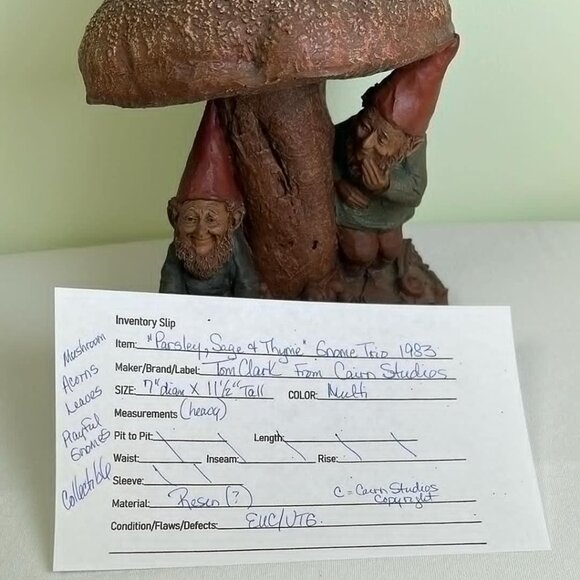 Inventory Slip
Item: "Parsley, Sage & Thyme" Gnome Trio 1983
Maker/Brand/Label: Tom Clark From Cairn Studios
SIZE: 7" diam X 11½" Tall COLOR: Multi
Measurements (heavy)
Pit to Pit: Length:
Waist: Inseam: Rise:
Sleeve:
Material: Resin (?) C = Cairn Studios
Copyright
Condition/Flaws/Defects: EUC/VTG.
Mushroom
Acorns
Leaves
Playful
Gnomes
Collectible